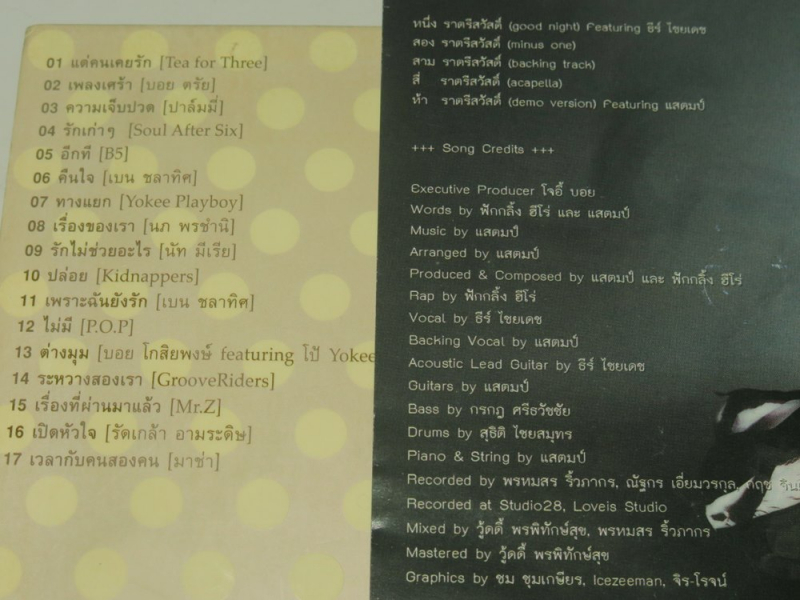 01 แต่คนเคยรัก [Tea for Three]
02 เพลงเศร้า [บอย ตรัย]
03 ความเจ็บปวด [ปาล์มมี่]
04 รักเก่าๆ [Soul After Six]
05 อีกที [B5]
06 คืนใจ [เบน ชลาทิศ]
07 ทางแยก [Yokee Playboy]
08 เรื่องของเรา [นภ พรชำนิ]
09 รักไม่ช่วยอะไร [นัท มีเรีย]
10 ปล่อย [Kidnappers]
11 เพราะฉันยังรัก [เบน ชลาทิศ]
12 ไม่มี [P.O.P]
13 ต่างมุม [บอย โกสิยพงษ์ featuring โป้ Yokee
14 ระหวางสองเรา [GrooveRiders]
15 เรื่องที่ผ่านมาแล้ว [Mr.Z]
16 เปิดหัวใจ [รัดเกล้า อามระดิษ]
17 เวลากับคนสองคน [มาช่า]
หนึ่ง ราตรีสวัสดิ์ (good night) Featuring ธีร์ ไชยเดช
สอง ราตรีสวัสดิ์ (minus one)
สาม ราตรีสวัสดิ์ (backing track)
สี่ ราตรีสวัสดิ์ (acapella)
ห้า ราตรีสวัสดิ์ (demo version) Featuring แสตมป์
+++ Song Credits +++
Executive Producer โจอี้ บอย
Words by ฟักกลิ้ง ฮีโร่ และ แสตมป์
Music by แสตมป์
Arranged by แสตมป์
Produced & Composed by แสตมป์ และ ฟักกลิ้ง ฮีโร่
Rap by ฟักกลิ้ง ฮีโร่
Vocal by ธีร์ ไชยเดช
Backing Vocal by แสตมป์
Acoustic Lead Guitar by ธีร์ ไชยเดช
Guitars by แสตมป์
Bass by กรกฎ ศรีธวัชชัย
Drums by สุธิติ ไชยสมุทร
Piano & String by แสตมป์
Recorded by พรหมสร ริ้วภากร, ณัฐกร เอี่ยมวรกุล,
Recorded at Studio28, Loveis Studio
Mixed by วู้ดดี้ พรพิทักษ์สุข, พรหมสร ริ้วภากร
Mastered by วู้ดดี้ พรพิทักษ์สุข
Graphics by ชม ชุมเกษียร, Icezeeman, จิร-โรจน์